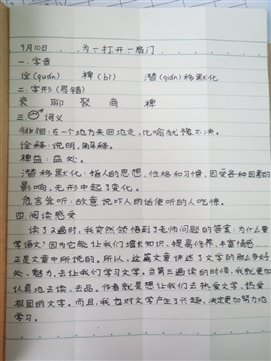 9月10日 为一打开一扇门
一.字音
诠(quán) 裨(bì) 潜(qián)移默化
二.字形(易错)
衰 聊 聚 商 裨
三. 词义
徘徊:在一个地方来回地走,比喻犹豫不决。
诠释:说明,解释。
裨益:益处。
潜移默化:指人的思想、性格和习惯,因受各种因素的
影响,无形中起了变化。
危言耸听:故意说吓人的话使听的人吃惊。
四.阅读感受
读了2遍时,我突然领悟到了老师问题的答案:为什么要
学语文?因为它能让我们增长知识、提高修养、丰富情感……
正是文章中所说的。所以,这篇文章讲述了文学的
处、魅力,去让我们学习文学。当第三遍读的时候,我就更加
认真地去读、去品。作者就是想让我们去热爱文学,热爱
祖国的文学。而且,我也对文学产生了兴趣,决定更加努力地
学习。